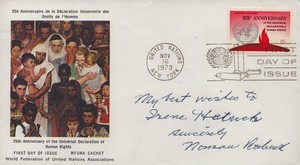 25th Anniversaire de la Déclaration Universelle des
Droits de l'Homme
UNITED NATIONS
NOV
16
1973
NEW YORK
25th ANNIVERSARY
DAY OF
ISSUE
My best wishes to
Irene
sincerely
Norman Rockwell
25th Anniversary of the Universal Declaration of
Human Rights
FIRST DAY OF ISSUE WFUNA CACHET
World Federation of United Nations Associations